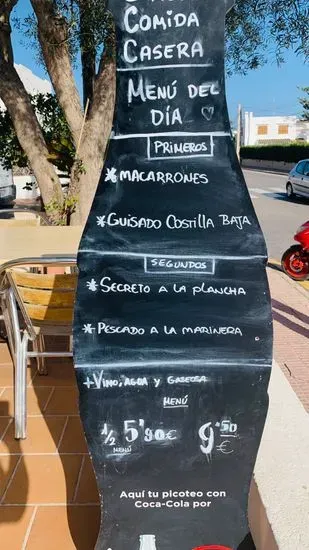 COMIDA
CASERA
MENÚ DEL
DÍA
PRIMEROS
*MACARRONES
*GUISADO COSTILLA BAJA
SEGUNDOS
*SECRETO A LA PLANCHA
*PESCADO A LA MARINERA
+VINO, AGUA Y GASEOSA
MENÚ
½ 5'90€ 9'50€
MENÚ
Aquí tu picoteo con
Coca-Cola por